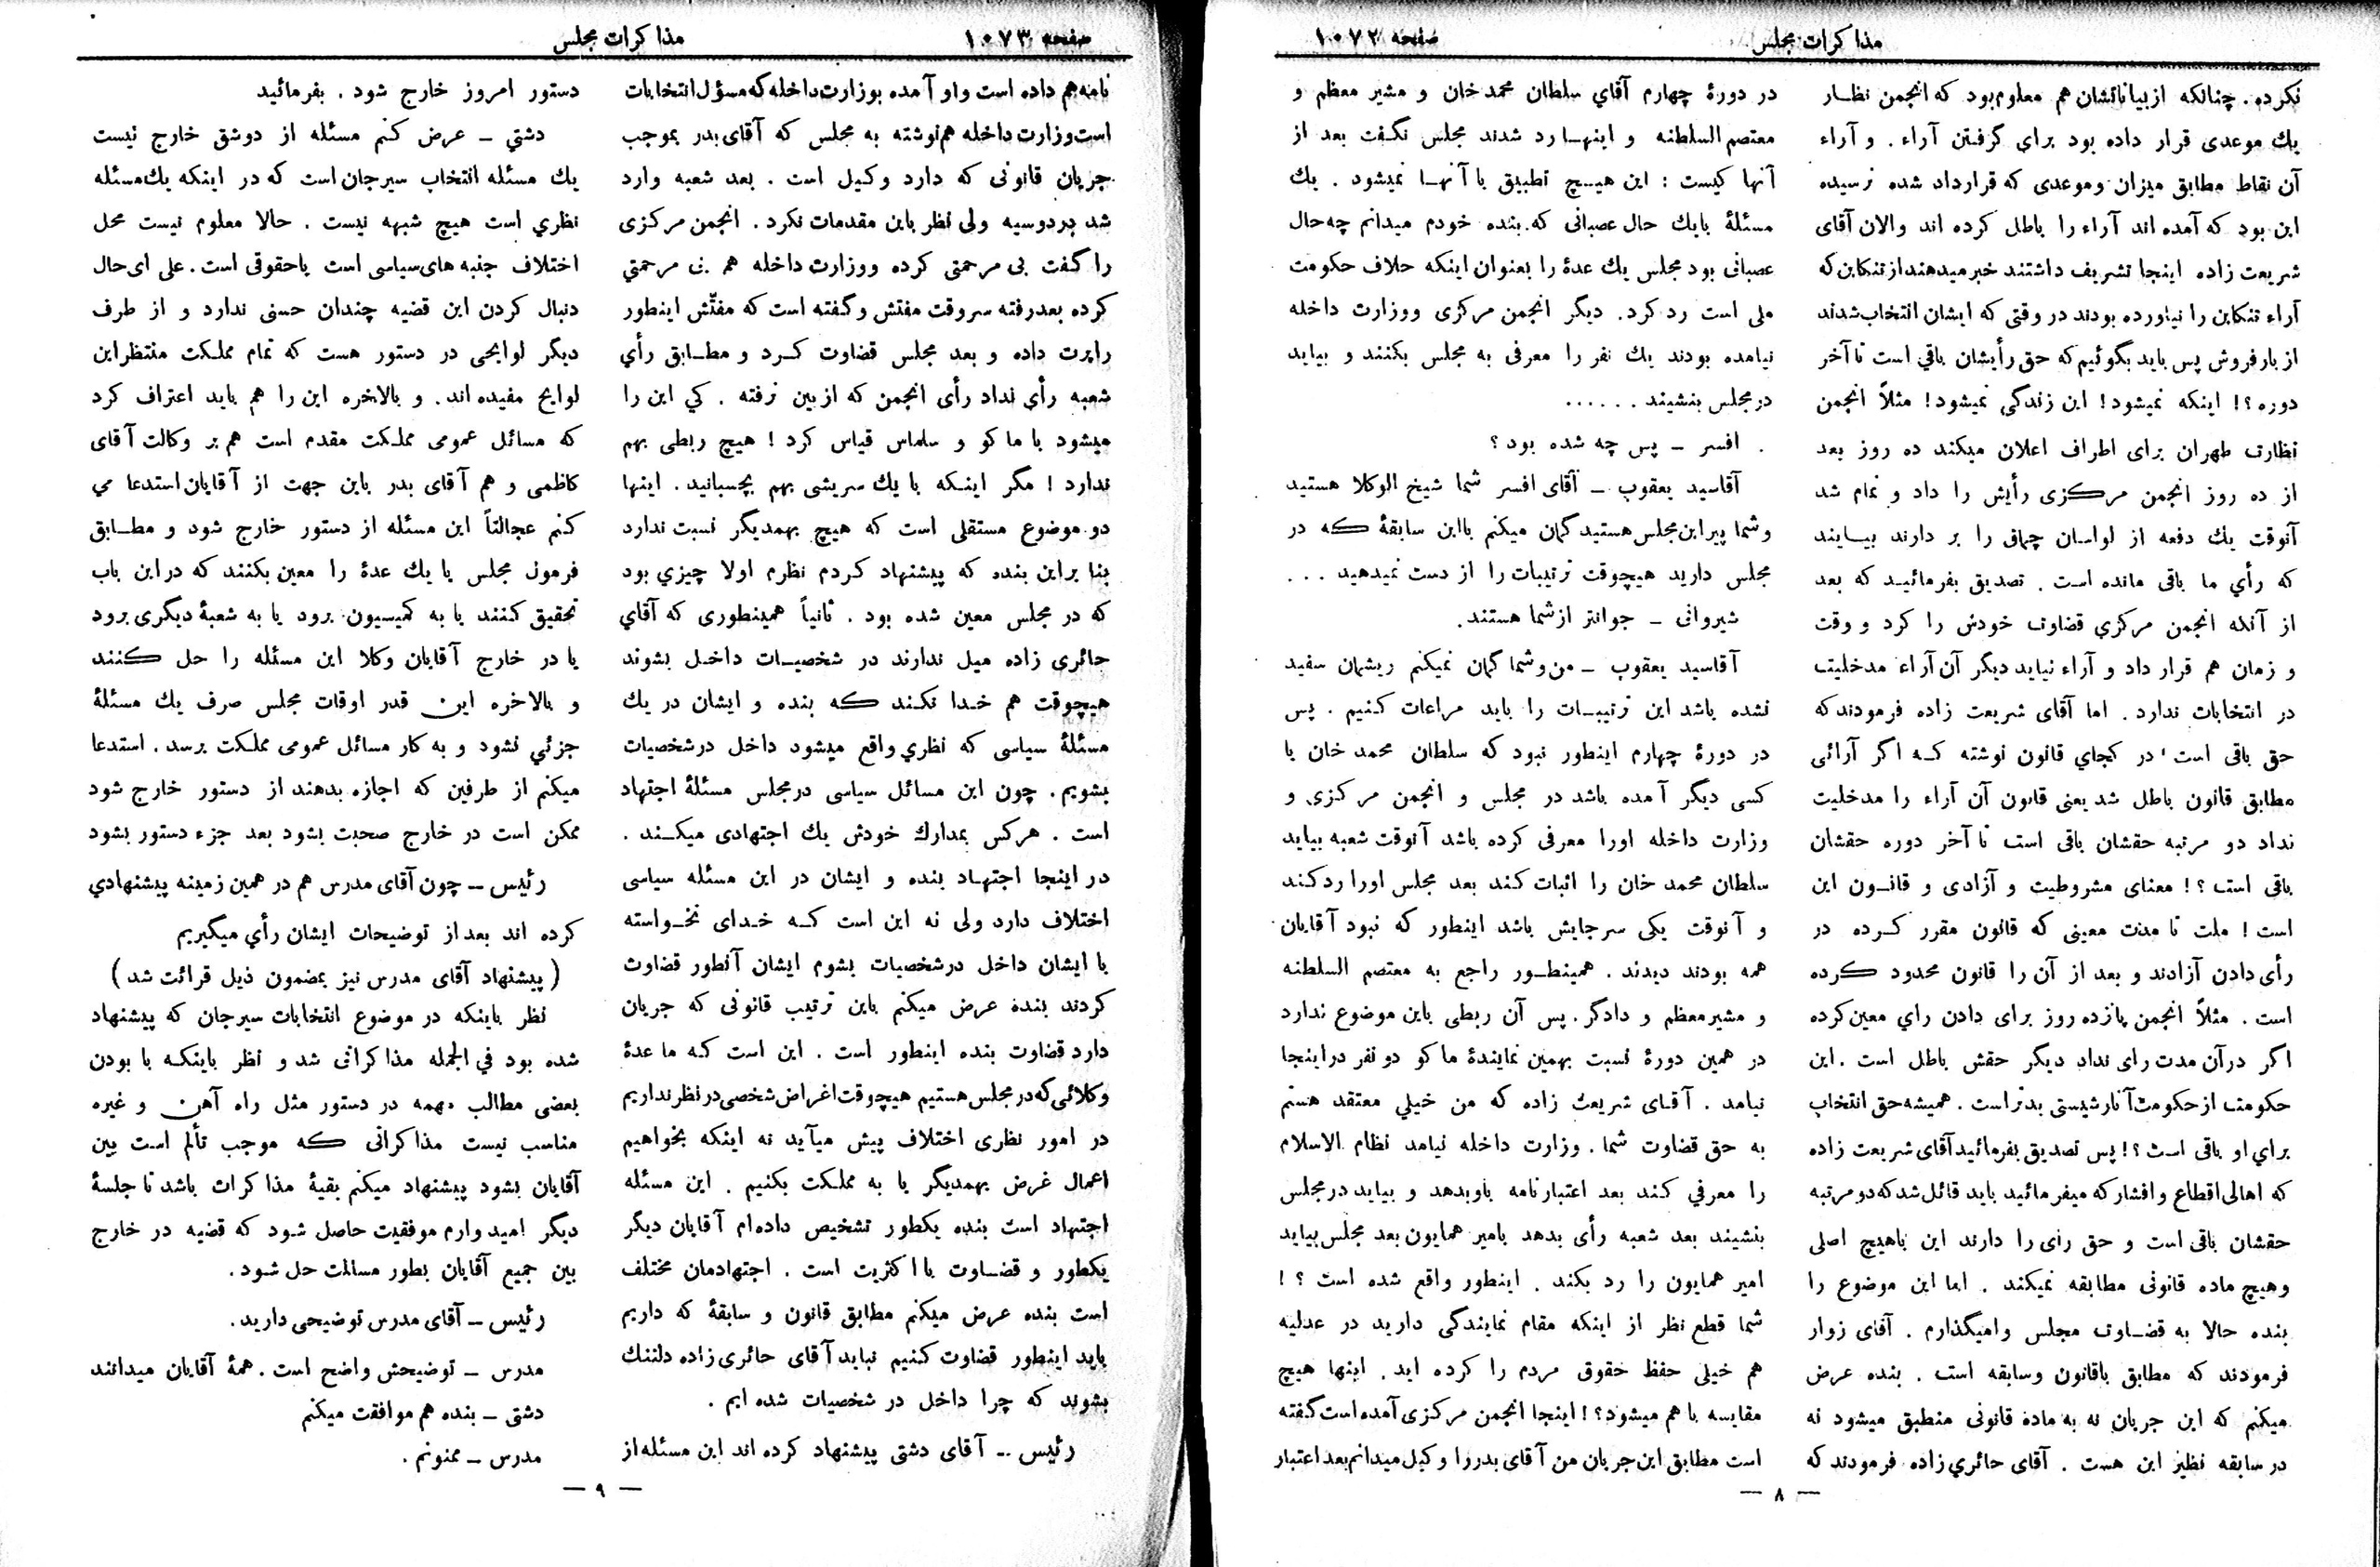 مذاکرات مجلس
صفحه ۱۰۷۲
نکرده. چنانکه از بیاناتشان هم معلوم بود که انجمن نظار
یك موعدی قرار داده بود برای گرفتن آراء . و آراء
آن نقاط مطابق میزان و موعدی که قرارداد شده نرسیده
این بود که آمده اند آراء را باطل کرده اند والان آقای
شریعت زاده اینجا تشریف داشتند خبر میدهند از تنکابن که
آراء تنکابن را نیاورده بودند در وقتی که ایشان انتخاب شدند
از بارفروش پس باید بگوئیم که حق رأیشان باقی است تا آخر
دوره ؟! اینکه نمیشود ! این زندگی نمیشود ! مثلاً انجمن
نظارت طهران برای اطراف اعلان میکند ده روز بعد
از ده روز انجمن مرکزی رأیش را داد و تمام شد
آنوقت یك دفعه از لواسان چماق را بر دارند بیایند
که رأی ما باقی مانده است . تصدیق بفرمائید که بعد
از آنکه انجمن مرکزي قضاوت خودش را کرد و وقت
و زمان هم قرار داد و آراء نیاید دیگر آن آراء مدخلیت
در انتخابات ندارد . اما آقای شریعت زاده فرمودند که
حق باقی است ' در کجاي قانون نوشته که اگر آرائی
مطابق قانون باطل شد یعنی قانون آن آراء را مدخلیت
نداد دو مرتبه حقشان باقی است تا آخر دوره حقشان
باقی است ؟! معنای مشروطیت و آزادی و قانون این
است ! ملت تا مدت معینی که قانون مقرر کرده در
رأی دادن آزادند و بعد از آن را قانون محدود کرده
است . مثلاً انجمن پانزده روز برای دادن راي معین کرده
اگر در آن مدت رای نداد دیگر حقش باطل است . این
حکومت از حکومت آنارشیستی بدتر است . همیشه حق انتخاب
براي او باقی است ؟! پس تصدیق بفرمائید آقای شریعت زاده
که اهالی اقطاع و افشار که میفرمائید باید قائل شد که دو مرتبه
حقشان باقی است و حق رای را دارند این باهیچ اصلی
و هیچ ماده قانونی مطابقه نمیکند . اما این موضوع را
بنده حالا به قضاوت مجلس وامیگذارم . آقای زوار
فرمودند که مطابق باقانون وسابقه است . بنده عرض
میکنم که این جریان نه به ماده قانونی منطبق میشود نه
در سابقه نظیر این هست . آقای حائري زاده فرمودند که
در دورهٔ چهارم آقاي سلطان محمد خان و مشیر معظم و
معتصم السلطنه و اینها رد شدند مجلس نگفت بعد از
آنها کیست : این هیچ تطبیق با آنها نمیشود . یك
مسئلهٔ بایك حال عصبانی که بنده خودم میدانم چه حال
عصبانی بود مجلس یك عدهٔ را بعنوان اینکه خلاف حکومت
ملی است رد کرد. دیگر انجمن مرکزی ووزارت داخله
نیامده بودند یك نفر را معرفی به مجلس بکنند و بیاید
در مجلس بنشیند . . . . . .
. افسر – پس چه شده بود ؟
آقاسید یعقوب – آقای افسر شما شیخ الوکلا هستید
وشما پیر این مجلس هستید گمان میکنم با این سابقهٔ که در
مجلس دارید هیچوقت ترتیبات را از دست نمیدهید . . .
شیروانی – جوانتر از شما هستند.
آقاسید یعقوب – من و شما گمان نمیکنم ریشمان سفید
نشده باشد این ترتیبات را باید مراعات کنیم . پس
در دورهٔ چهارم اینطور نبود که سلطان محمد خان یا
کسی دیگر آمده باشد در مجلس و انجمن مرکزی و
وزارت داخله اورا معرفی کرده باشد آنوقت شعبه بیاید
سلطان محمد خان را اثبات کند بعد مجلس اورا رد کند
و آنوقت یکی سر جایش باشد اینطور که نبود آقایان
همه بودند دیدند . همینطور راجع به معتصم السلطنه
و مشیر معظم و دادگر. پس آن ربطی باین موضوع ندارد
در همین دورهٔ نسبت بهمین نمایندهٔ ماکو دو نفر در اینجا
نیامد . آقای شریعت زاده که من خیلي معتقد هستم
به حق قضاوت شما . وزارت داخله نیامد نظام الاسلام
را معرفي کند بعد اعتبارنامه باو بدهد و بیاید در مجلس
بنشیند بعد شعبه رأی بدهد بامیر همایون بعد مجلس بیاید
امیر همایون را رد بکند . اینطور واقع شده است ؟ !
شما قطع نظر از اینکه مقام نمایندگی دارید در عدلیه
هم خیلی حفظ حقوق مردم را کرده اید . اینها هیچ
مقایسه با هم میشود؟! اینجا انجمن مرکزی آمده است گفته
است مطابق این جریان من آقای بدر را وکیل میدانم بعد اعتبار
— ۸ —
صفحه ۱۰۷۳
مذاکرات مجلس
نامه هم داده است و او آمده بوزارت داخله که مسؤل انتخابات
است وزارت داخله هم نوشته به مجلس که آقای بدر بموجب
جریان قانونی که دارد وکیل است . بعد شعبه وارد
شد در دوسیه ولی نظر باین مقدمات نکرد . انجمن مرکزی
را گفت بی مرحمتی کرده ووزارت داخله هم بی مرحمتي
کرده بعد رفته سر وقت مفتش و گفته است که مفتّش اینطور
راپرت داده و بعد مجلس قضاوت کرد و مطابق رأي
شعبه رأی نداد رأی انجمن که از بین نرفته . کي این را
میشود با ماکو و سلماس قیاس کرد ! هیچ ربطی بهم
ندارد ! مگر اینکه با یك سریشی بهم بچسبانید . اینها
دو موضوع مستقلی است که هیچ بهمدیگر نسبت ندارد
بنا بر این بنده که پیشنهاد کردم نظرم اولا چیزي بود
که در مجلس معین شده بود . ثانیاً همینطوری که آقاي
حائری زاده میل ندارند در شخصیات داخل بشوند
هیچوقت هم خدا نکند که بنده و ایشان در یك
مسئلهٔ سیاسی که نظري واقع میشود داخل در شخصیات
بشویم . چون این مسائل سیاسی در مجلس مسئلهٔ اجتهاد
است . هر کس بمدارك خودش یك اجتهادی میکند .
در اینجا اجتهاد بنده و ایشان در این مسئله سیاسی
اختلاف دارد ولی نه این است که خدای نخواسته
با ایشان داخل در شخصیات بشوم ایشان آنطور قضاوت
کردند بنده عرض میکنم باین ترتیب قانونی که جریان
دارد قضاوت بنده اینطور است . این است که ما عدهٔ
وکلائی که در مجلس هستیم هیچوقت اغراض شخصی در نظر نداریم
در امور نظری اختلاف پیش میآید نه اینکه بخواهیم
اعمال غرض بهمدیگر یا به مملکت بکنیم . این مسئله
اجتهاد است بنده یکطور تشخیص داده ام آقایان دیگر
یکطور و قضاوت با اکثریت است . اجتهادمان مختلف
است بنده عرض میکنم مطابق قانون و سابقهٔ که داریم
باید اینطور قضاوت کنیم نباید آقای حائری زاده دلتنك
بشوند که چرا داخل در شخصیات شده ایم .
رئیس – آقای دشتی پیشنهاد کرده اند این مسئله از
دستور امروز خارج شود . بفرمائید
دشتي – عرض کنم مسئله از دوشق خارج نیست
یك مسئله انتخاب سیرجان است که در اینکه یك مسئله
نظري است هیچ شبهه نیست . حالا معلوم نیست محل
اختلاف جنبه های سیاسی است یا حقوقی است . علی ای حال
دنبال کردن این قضیه چندان حسنی ندارد و از طرف
دیگر لوایحی در دستور هست که تمام مملکت منتظر این
لوایح مفیده اند . و بالاخره این را هم باید اعتراف کرد
که مسائل عمومی مملکت مقدم است هم بر وکالت آقای
کاظمی و هم آقای بدر باین جهت از آقایان استدعا مي
کنم عجالتاً این مسئله از دستور خارج شود و مطابق
فرمول مجلس یا یك عدهٔ را معین بکنند که در این باب
تحقیق کنند یا به کمیسیون برود یا به شعبهٔ دیگری برود
یا در خارج آقایان وکلا این مسئله را حل کنند
و بالاخره این قدر اوقات مجلس صرف یك مسئلهٔ
جزئي نشود و به کار مسائل عمومی مملکت برسد . استدعا
میکنم از طرفین که اجازه بدهند از دستور خارج شود
ممکن است در خارج صحبت بشود بعد جزء دستور بشود
رئیس – چون آقای مدرس هم در همین زمینه پیشنهادي
کرده اند بعد از توضیحات ایشان رأي میگیریم
( پیشنهاد آقای مدرس نیز بمضمون ذیل قرائت شد )
نظر باینکه در موضوع انتخابات سیرجان که پیشنهاد
شده بود في الجمله مذاکراتی شد و نظر باینکه با بودن
بعضی مطالب مهمه در دستور مثل راه آهن و غیره
مناسب نیست مذاکراتی که موجب تألم است بین
آقایان بشود پیشنهاد میکنم بقیهٔ مذاکرات باشد تا جلسهٔ
دیگر امیدوارم موفقیت حاصل شود که قضیه در خارج
بین جمیع آقایان بطور مسالمت حل شود .
رئیس – آقای مدرس توضیحی دارید.
مدرس – توضیحش واضح است . همهٔ آقایان میدانند
دشتی – بنده هم موافقت میکنم
مدرس – ممنونم .
— ۹ —